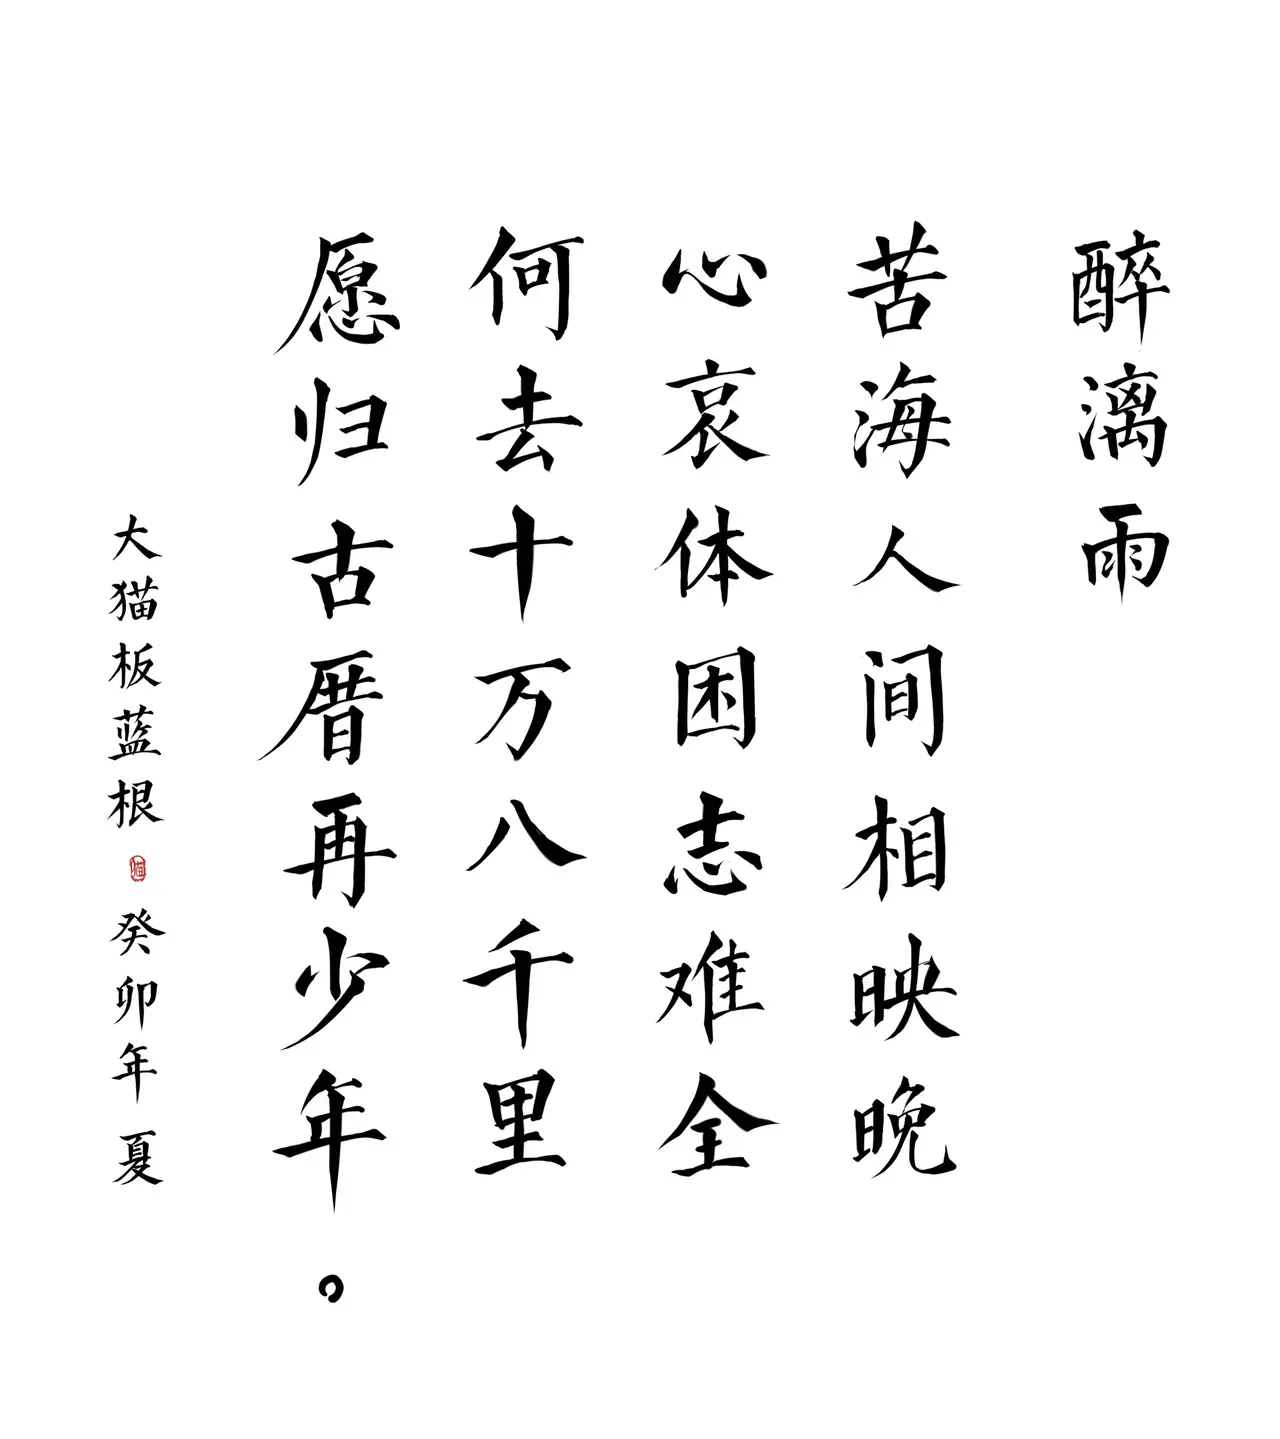 醉漓雨
苦海人间相映晚
心哀体困志难全
何去十万八千里
愿归古厝再少年。
大猫板蓝根 猫 癸卯年 夏